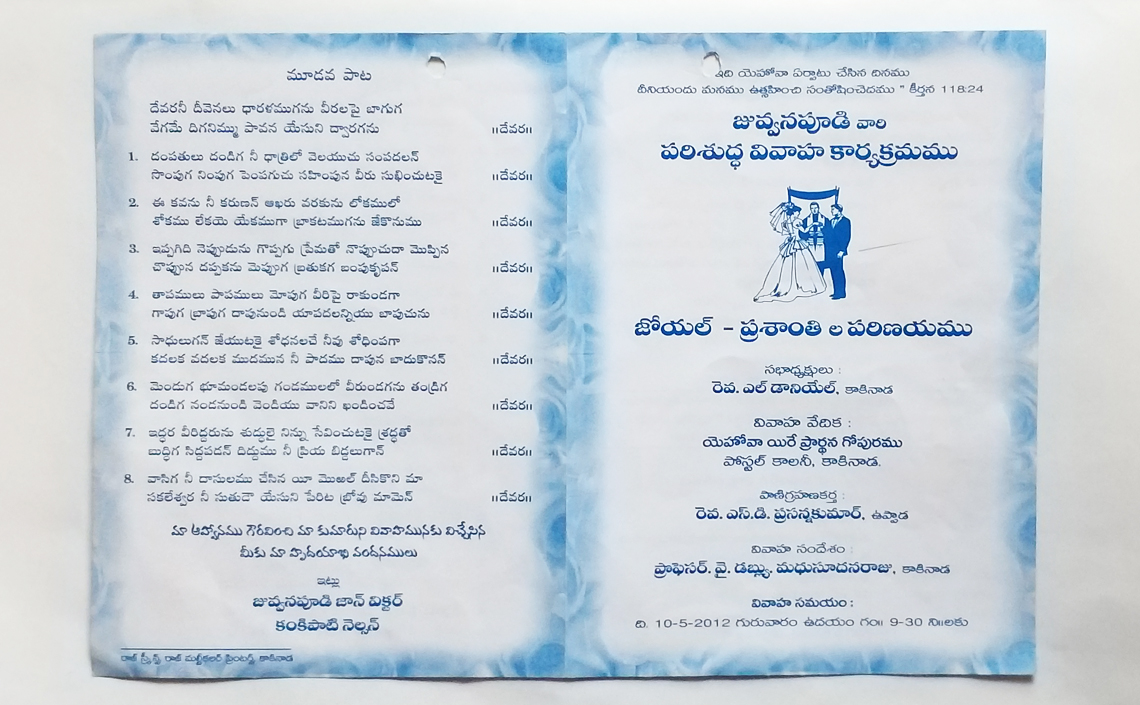 మూడవ పాట
దేవరనీ దీవెనలు ధారళముగను వీరలపై బాగుగ
వేగమే దిగనిమ్ము పావన యేసుని ద్వారగను ॥దేవర॥
1. దంపతులు దండిగ నీ ధాత్రిలో వెలయుచు సంపదలన్
సొంపుగ నింపుగ పెంపగుచు సహింపున వీరు సుఖించుటకై ॥దేవర॥
2. ఈ కవను నీ కరుణన్ ఆఖరు వరకును లోకములో
శోకము లేకయె యేకముగా బ్రాకటముగను జేకొనుము ॥దేవర॥
3. ఇప్పగిది నెప్పుడును గొప్పగు ప్రేమతో నొప్పుచుదా మొప్పిన
చొప్పున దప్పకను మెప్పుగ బ్రతుకగ బంపుకృపన్ ॥దేవర॥
4. తాపములు పాపములు మోపుగ వీరిపై రాకుండగా
గాపుగ బ్రాపుగ దాపునుండి యాపదలన్నియు బాపుచును ॥దేవర॥
5. సాధులుగన్ జేయుటకై శోధనలచే నీవు శోధింపగా
కదలక వదలక ముదమున నీ పాదము దాపున బాదుకొనన్ ॥దేవర॥
6. మెండుగ భూమండలపు గండములలో వీరుండగను తండ్రిగ
దండిగ నండనుండి వెండియు వానిని ఖండించవే ॥దేవర॥
7. ఇద్దర వీరిద్దరును శుద్ధులై నిన్ను సేవించుటకై శ్రద్ధతో
బుద్ధిగ సిద్దపడన్ దిద్దుము నీ ప్రియ బిడ్డలుగాన్ ॥దేవర॥
8. వాసిగ నీ దాసులము చేసిన యీ మొఱల్ దీసికొని మా
సకలేశ్వర నీ సుతుడౌ యేసుని పేరిట బ్రోవు మామెన్ ॥దేవర॥
మా ఆహ్వానము గౌరవించి మా కుమారుని వివాహమునకు విచ్చేసిన
మీకు మా హృదయాభి వందనములు
ఇట్లు
జువ్వనపూడి జాన్ విక్టర్
కంకిపాటి నెల్సన్
రాజ్ స్క్రీన్స్ రాజ్ మల్టీకలర్ ప్రింటర్స్ కాకినాడ
ఇది యెహోవా ఏర్పాటు చేసిన దినము
దీనియందు మనము ఉత్సహించి సంతోషించెదము " కీర్తన 118:24
జువ్వనపూడి వారి
పరిశుద్ధ వివాహ కార్యక్రమము
జోయల్ - ప్రశాంతి ల పరిణయము
సభాధ్యక్షులు :
రెవ. ఎల్ డానియేల్, కాకినాడ
వివాహ వేదిక :
యెహోవా యిరే ప్రార్థన గోపురము
పోస్టల్ కాలనీ, కాకినాడ.
పాణిగ్రహణకర్త :
రెవ. ఎస్.డి. ప్రసన్నకుమార్, ఉప్పాడ
వివాహ సందేశం :
ప్రొఫెసర్. వై. డబ్ల్యు. మధుసూదనరాజు, కాకినాడ
వివాహ సమయం :
ది. 10-5-2012 గురువారం ఉదయం గం॥ 9-30 ని॥లకు